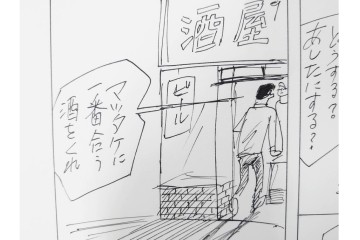 どうする?
あしたにする?
酒屋
ビール
マツタケに
一番合う
酒をくれ